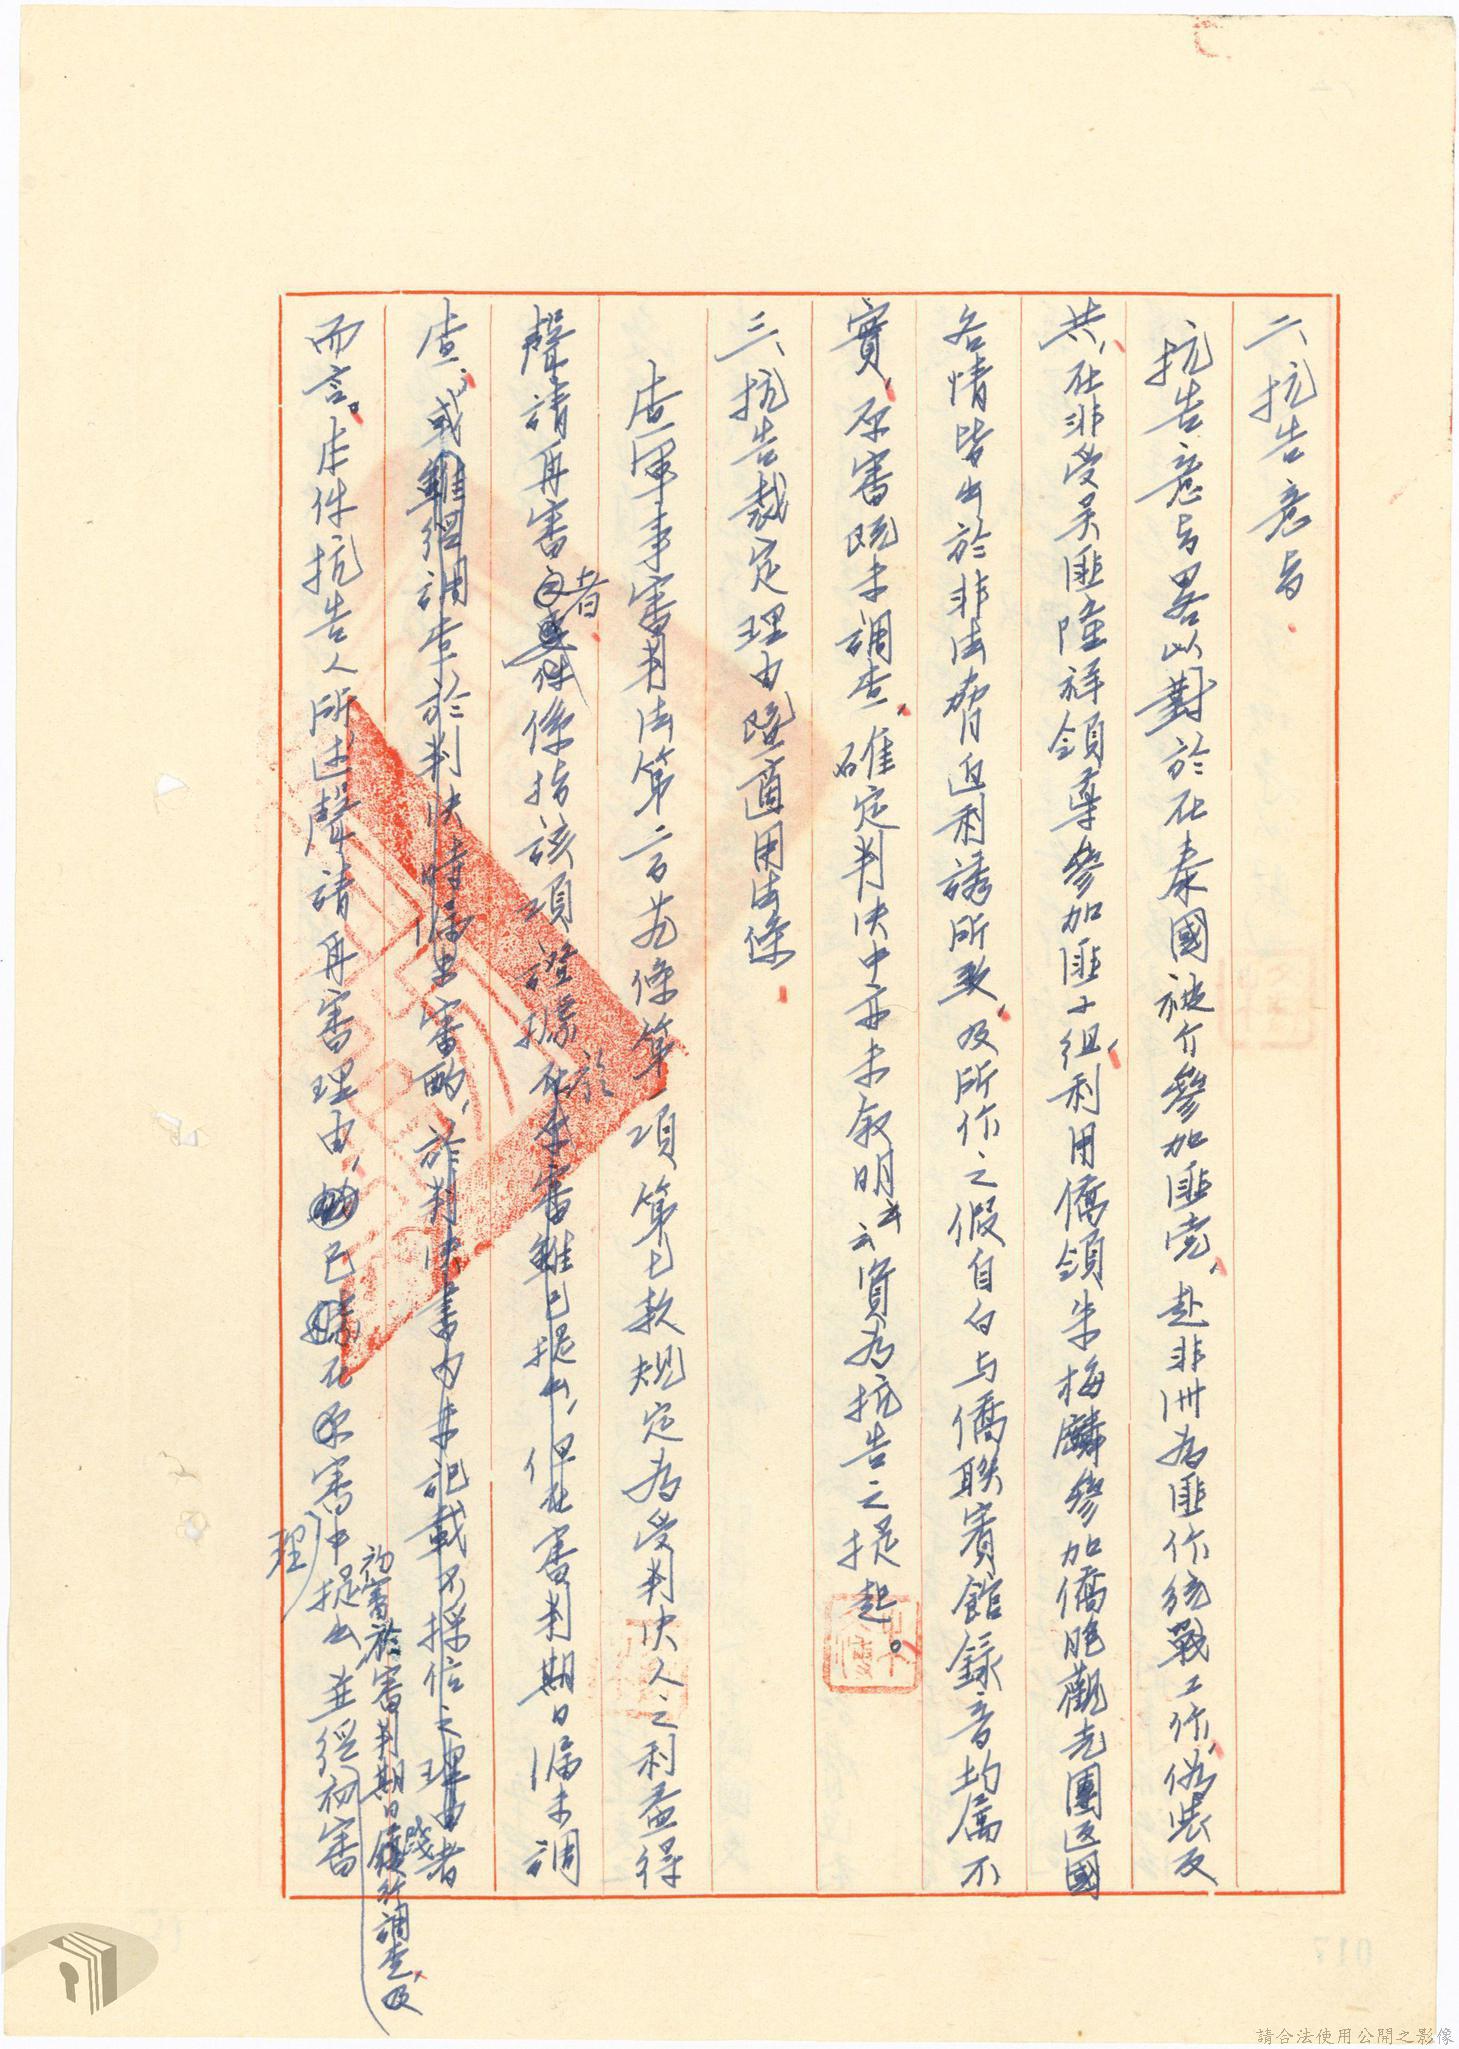 二、抗告意旨
抗告意旨畧以對於在泰國被介參加匪党，赴非洲為匪作統戰工作，偽裝反
共，在非受吴匪隆祥領導參加匪小組，利用僑領朱梅麟參加僑胞觀光團返國
各情皆出於非法脅迫利誘所致，及所作之假自白与僑联賓館錄音均屬不
實，原審既未調查，確定判決中亦未敘明云云資為抗告之提起。
三、抗告裁定理由暨適用法條
查軍事審判法第二百光條第一項第七款規定為受判決人之利益得
聲請再審者係指該項證據於審判期日漏未調
查，或雖經調查於判決時漏未審酌，於判決書內未記載不採信之理由者
而言。本件抗告人所述聲請再審理由，已在原審中提出並經初審
初審於審判期日踐行調查，及
理
017
請合法使用公開之影像